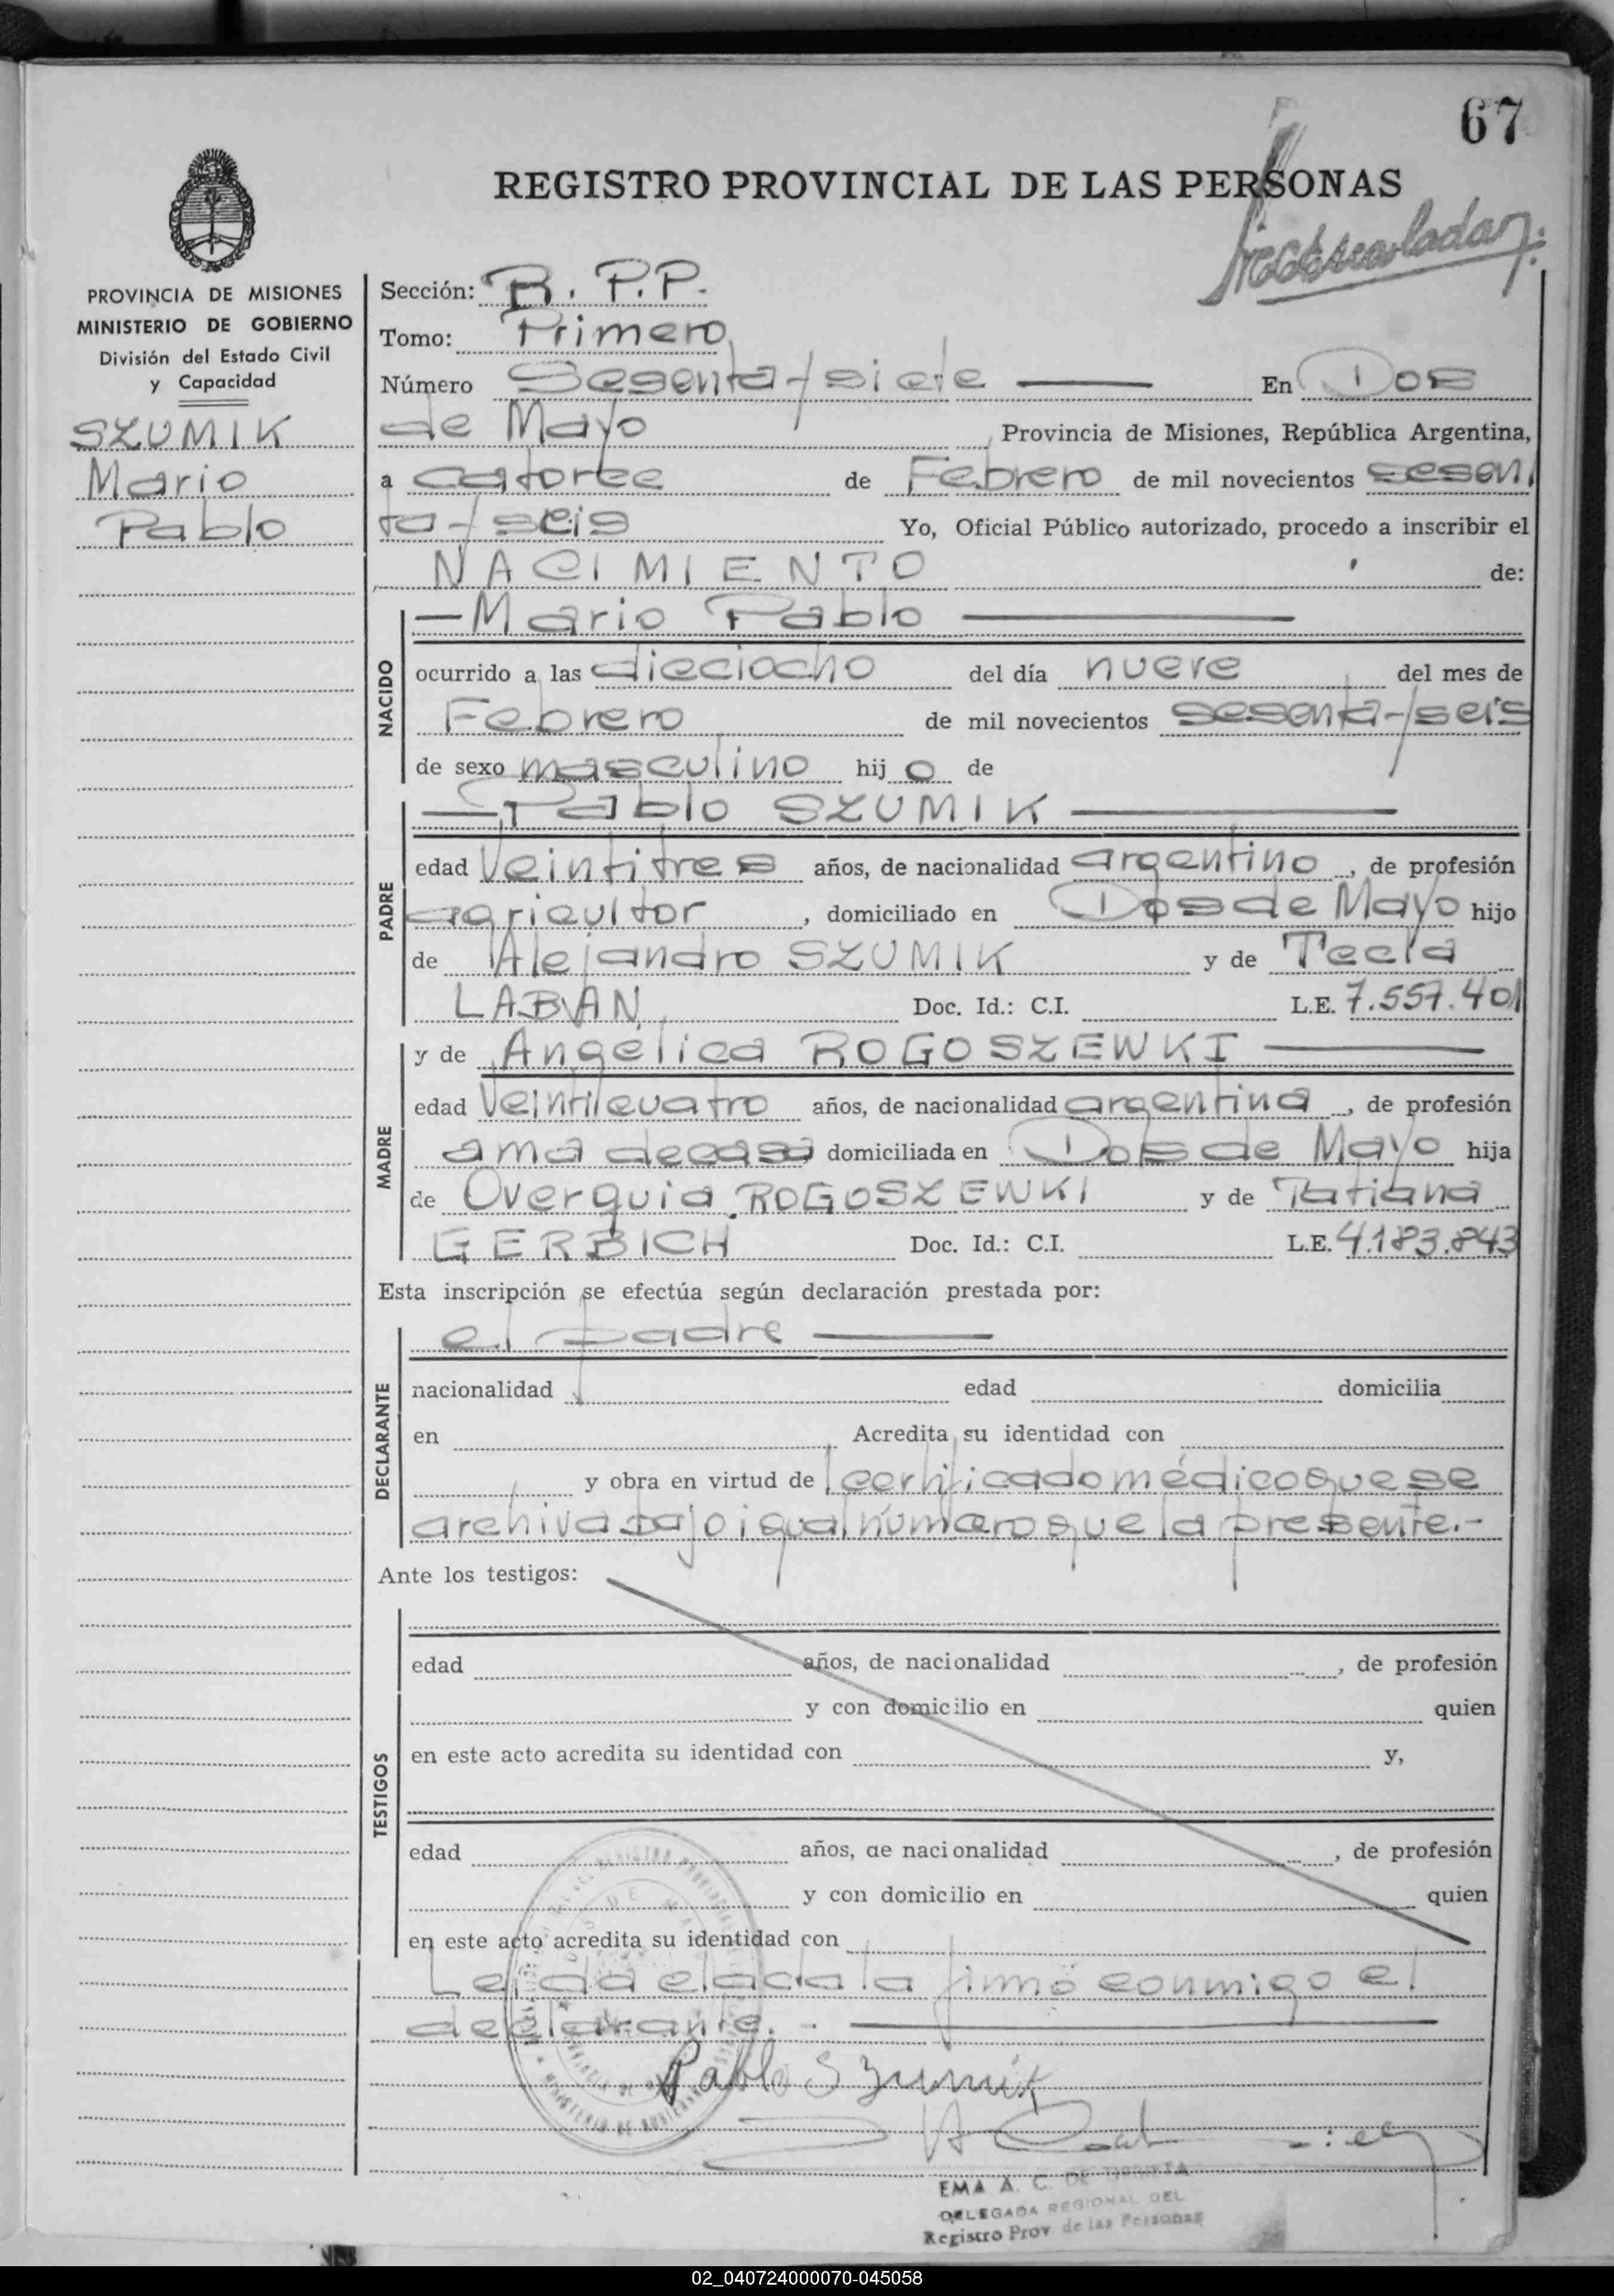 67
REGISTRO PROVINCIAL DE LAS PERSONAS
PROVINCIA DE MISIONES
MINISTERIO DE GOBIERNO
División del Estado Civil
y Capacidad
SZUMIK
Mario
Pablo
Sección: R. P.P.
Tomo: Primero
Número Sesenta y siete En Dos
de Mayo, Provincia de Misiones, República Argentina,
a catorce de Febrero de mil novecientos sesen
ta y seis Yo, Oficial Público autorizado, procedo a inscribir el
NACIMIENTO de:
NACIDO
— Mario Pablo —
ocurrido a las dieciocho del día nueve del mes de
Febrero de mil novecientos sesenta y seis
de sexo masculino hij o de
PADRE
— Pablo SZUMIK —
edad Veintitres años, de nacionalidad argentino, de profesión
agricultor, domiciliado en Dos de Mayo hijo
de Alejandro SZUMIK y de Tecla
LABAN Doc. Id.: C.I. L.E. 7.557.401
MADRE
y de Angelica ROGOSZEWKI —
edad Veinticuatro años, de nacionalidad argentina, de profesión
ama de casa domiciliada en Dos de Mayo hija
de Overquia ROGOSZEWKI y de Tatiana
GERBICH Doc. Id.: C.I. L.E. 4.183.843
Esta inscripción se efectúa según declaración prestada por:
DECLARANTE
el padre —
nacionalidad edad domicilia
en Acredita su identidad con
y obra en virtud de certificado médico que se
archiva bajo igual número que la presente.-
Ante los testigos:
TESTIGOS
edad años, de nacionalidad , de profesión
y con domicilio en quien
en este acto acredita su identidad con y,
edad años, de nacionalidad , de profesión
y con domicilio en quien
en este acto acredita su identidad con
Leida el acta la firmó conmigo el
declarante. —
Pablo Szumik
EMA A. C. DE
DELEGADA REGIONAL DEL
Registro Prov de las Personas
02_040724000070-045058